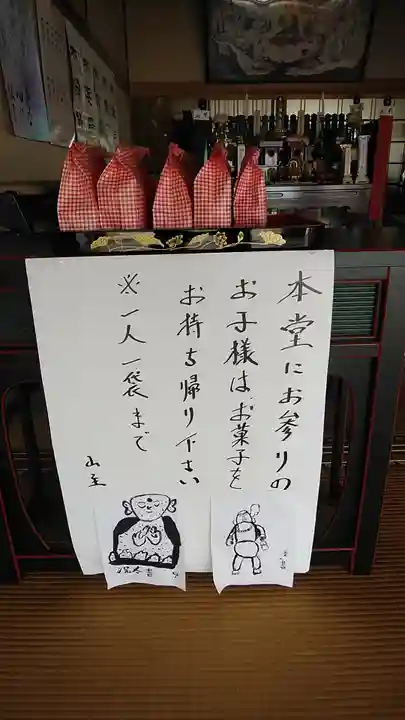 本堂にお参りの
お子様はお菓子を
お持ち帰り下さい
※一人一袋まで
山主